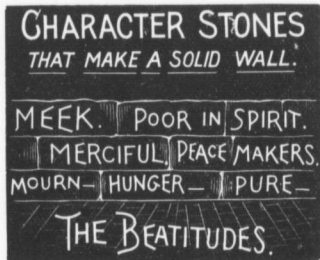 CHARACTER STONES
THAT MAKE A SOLID WALL.
MEEK. POOR IN SPIRIT.
MERCIFUL. PEACE MAKERS.
MOURN— HUNGER— PURE—
THE BEATITUDES.